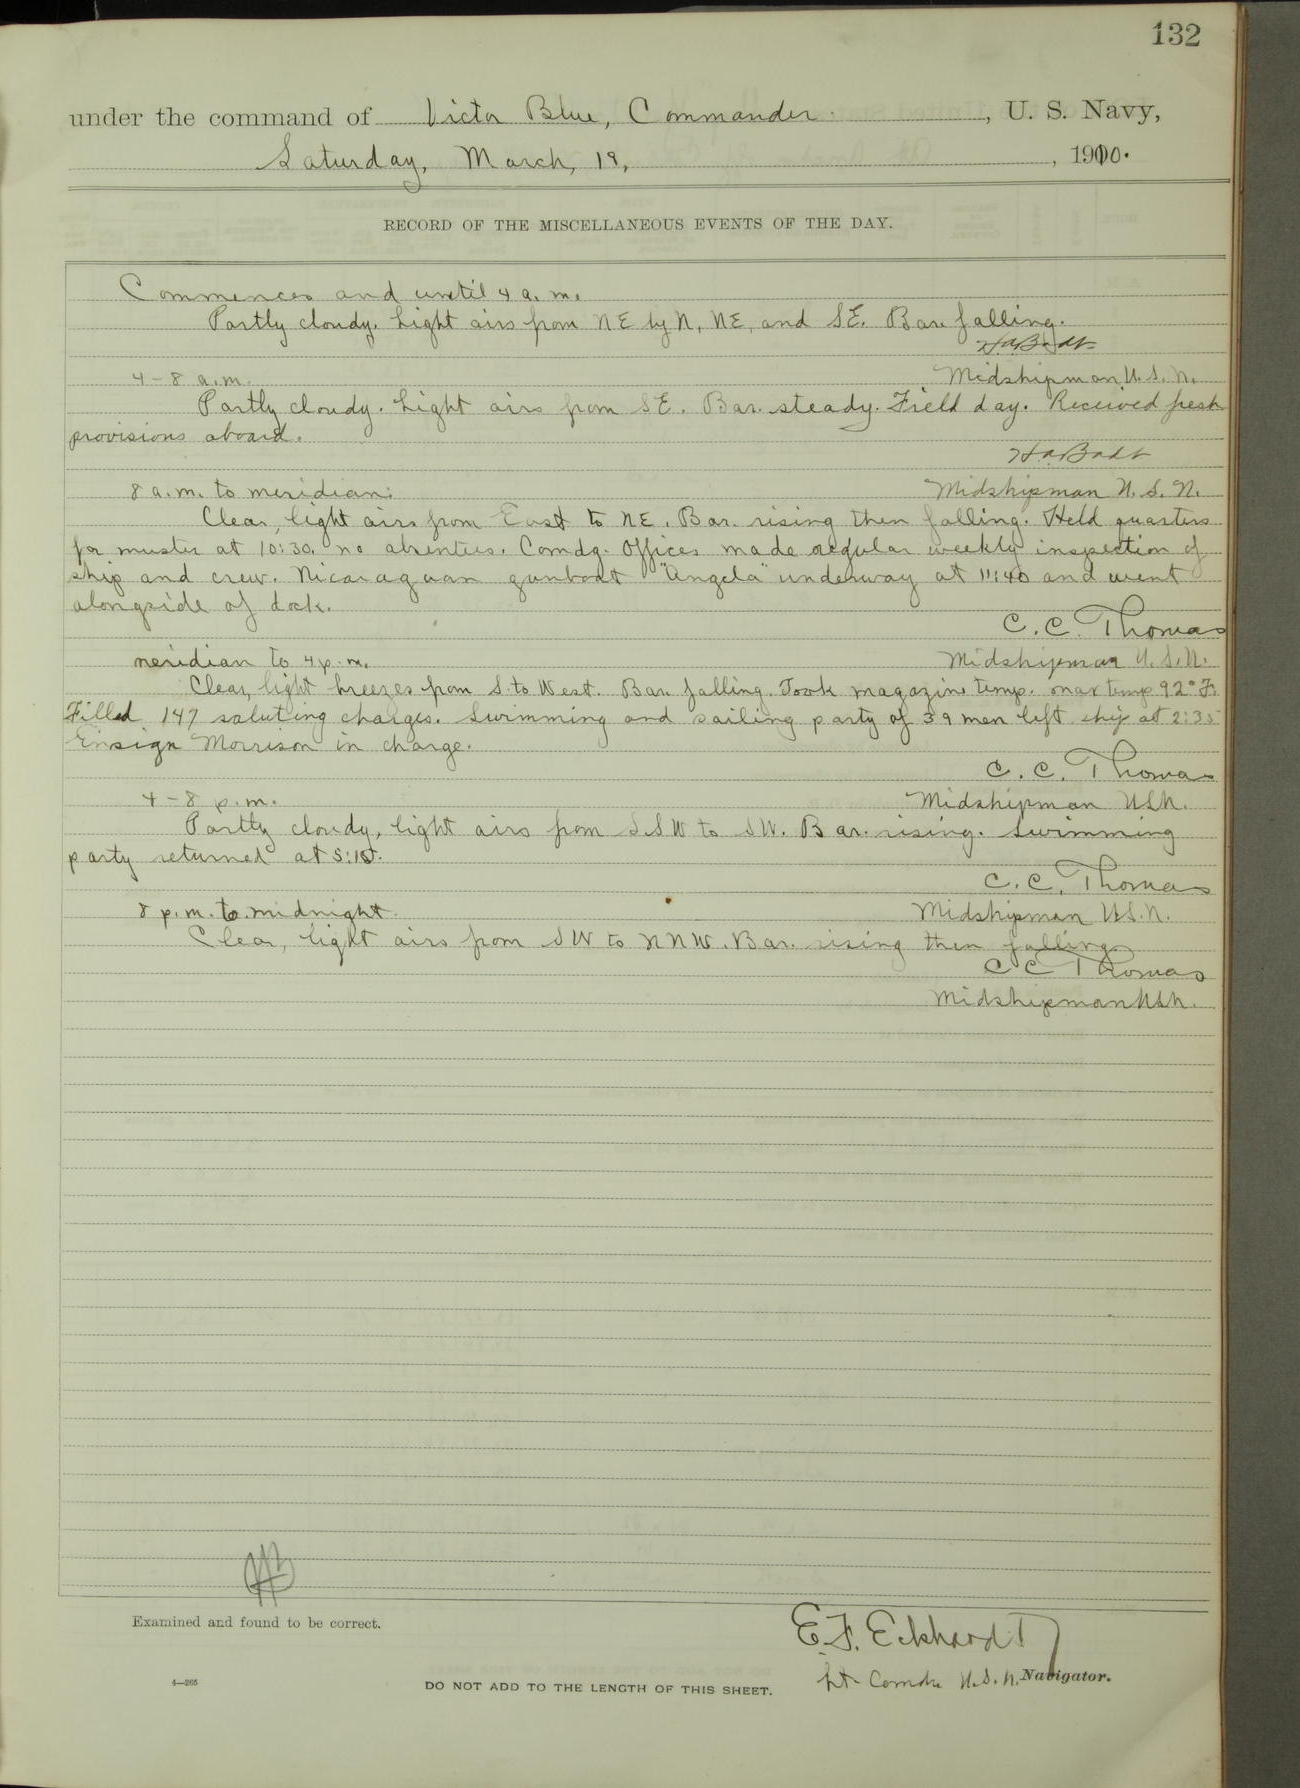 132
under the command of Victor Blue, Commander, U. S. Navy,
Saturday, March, 19, 1910.
RECORD OF THE MISCELLANEOUS EVENTS OF THE DAY.
Commences and until 4 a. m.
Partly cloudy. Light airs from NE by N, NE, and SE. Bar. falling.
H.A. Badt
4-8 a.m. Midshipman U.S.N.
Partly cloudy. Light airs from SE. Bar. steady. Field day. Received fresh
provisions aboard.
H.A. Badt
8 a.m. to meridian: Midshipman U.S.N.
Clear, light airs from East to NE. Bar. rising then falling. Held quarters
for muster at 10:30. no absentees. Comdg. Officer made regular weekly inspection of
ship and crew. Nicaraguan gunboat "Angela" underway at 11:40 and went
alongside of dock.
C.C. Thomas
meridian to 4 p.m. Midshipman U.S.N.
Clear, light breezes from S. to West. Bar. falling. Took magazine temp. max temp 92° F.
Filled 147 saluting charges. Swimming and sailing party of 39 men left ship at 2:35
Ensign Morrison in charge.
C.C. Thomas
4-8 p.m. Midshipman USN.
Partly cloudy, light airs from SSW to SW. Bar. rising. Swimming
party returned at 5:15.
C.C. Thomas
8 p.m. to midnight Midshipman U.S.N.
Clear, light airs from SW to NNW. Bar. rising then falling.
C C Thomas
Midshipman USN.
Examined and found to be correct.
E.F. Eckhardt
Lt. Comdr. U.S.N. Navigator.
4—265
DO NOT ADD TO THE LENGTH OF THIS SHEET.